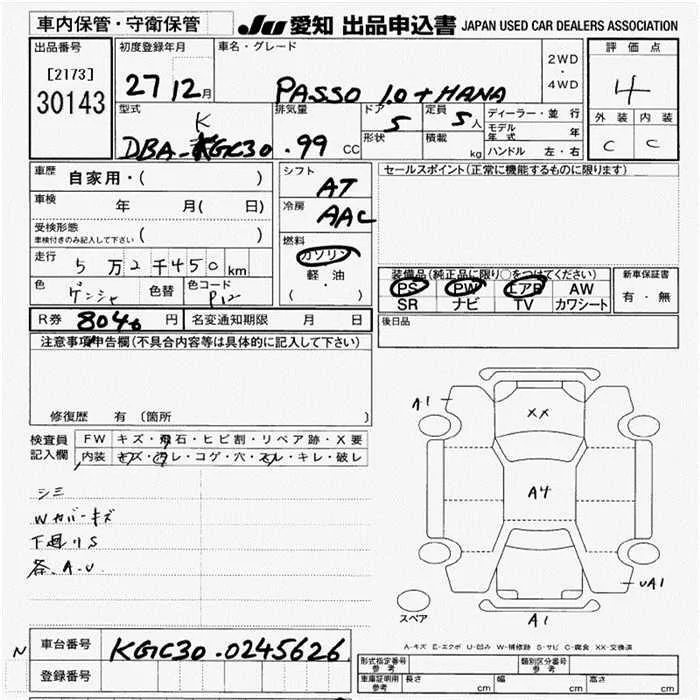 車内保管・守衛保管
JU 愛知 出品申込書 JAPAN USED CAR DEALERS ASSOCIATION
出品番号
[2173]
30143
初度登録年月
27 12月
車名・グレード
PASSO 1.0 + HANA
2WD
・
4WD
評価点
4
外装 内装
C C
型式
K
DBA-KGC30
排気量
.99 CC
ドア
5
形状
定員
5人
積載
kg
ディーラー・並行
モデル年式 年
ハンドル 左・右
車歴 自家用・( )
車検 年 月( 日)
受検形態
車検付きのみ記入して下さい ( )
走行 5万2千450km
色 ゲンシャ 色替 色コード P12
シフト
AT
冷房
AAC
燃料
ガソリン
軽油
( ・ )
セールスポイント(正常に機能するものに限ります)
装備品(純正品に限り○をつけてください)
PS PW エアB AW
SR ナビ TV カワシート
新車保証書
有・無
R券 8040 円 名変通知期限 月 日
後日品
注意事項申告欄(不具合内容等は具体的に記入して下さい)
修復歴 有 (箇所 )
検査員
記入欄
FW キズ・飛石・ヒビ割・リペア跡・X要
内装 キズ・汚レ・コゲ・穴・スレ・キレ・破レ
シミ
Wカバーキズ
下廻りS
各.A.U.
A1
XX
A4
UA1
A1
スペア
A-キズ E-エクボ U-凹み W-補修跡 S-サビ C-腐食 XX-交換済
N
車台番号 KGC30-0245626
登録番号
形式指定番号
参考
類別区分番号
参考
車庫証明用
参考
長さ cm 幅 cm 高さ cm